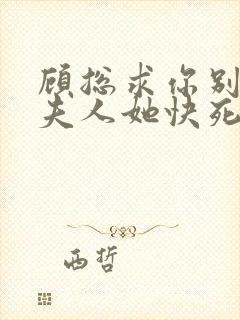 顾总求你别
夫人她快死
西哲